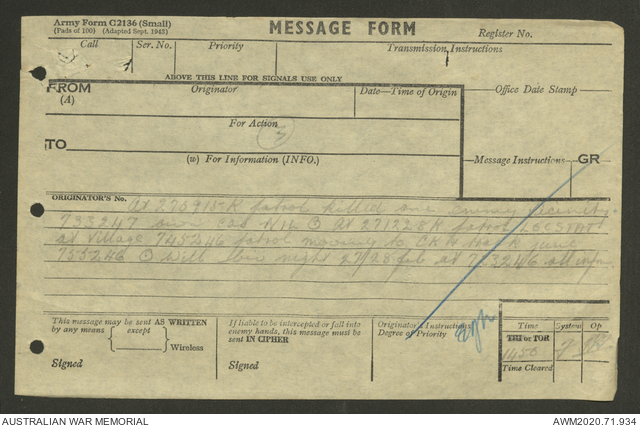 Army Form C2136 (Small)
(Pads of 100) (Adapted Sept. 1943)
MESSAGE FORM
Register No.
Call
Ser. No.
Priority
Transmission Instructions
ABOVE THIS LINE FOR SIGNALS USE ONLY
FROM
(A)
Originator
Date—Time of Origin
Office Date Stamp
For Action
TO
(w) For Information (INFO.)
Message Instructions
GR
ORIGINATOR'S No.
At 270915K patrol killed one enemy
733247 own cas Nil O At 271328K patrol LOCSTAT
at village 745246 patrol moving to track junc
755246 O Will night 27/28 feb at all infm
This message may be sent AS WRITTEN
by any means
except
Wireless
Signed
If liable to be intercepted or fall into
enemy hands, this message must be
sent IN CIPHER
Signed
Originator's Instructions
Degree of Priority
Time
System
Op
THI or TOR
1450
Time Cleared
AUSTRALIAN WAR MEMORIAL
AWM2020.71.934